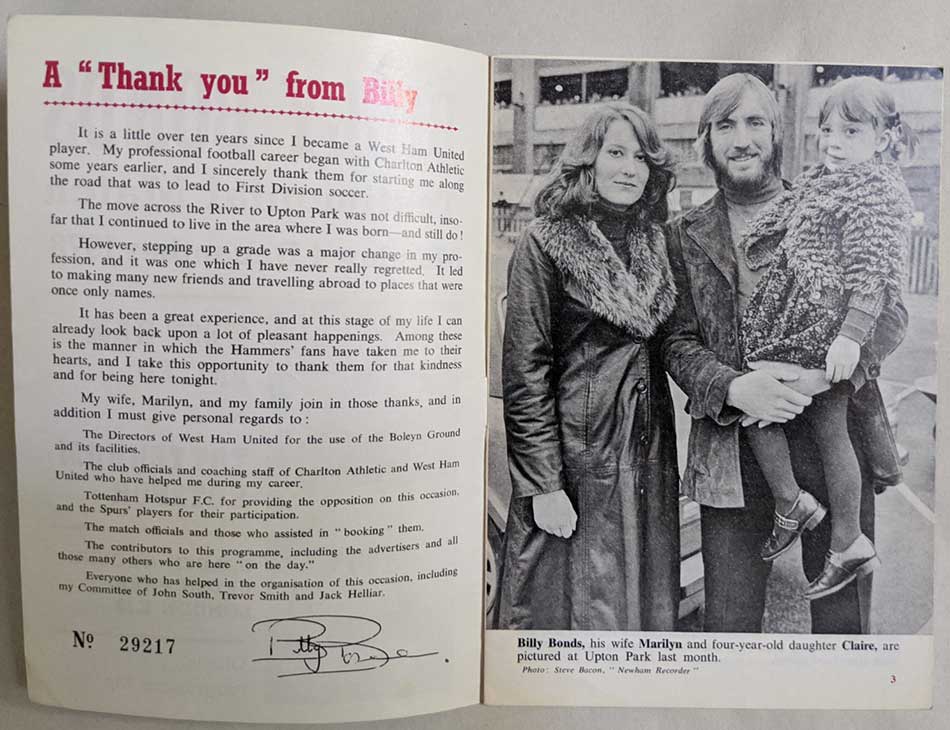 A “Thank you” from Billy
It is a little over ten years since I became a West Ham United
player. My professional football career began with Charlton Athletic
some years earlier, and I sincerely thank them for starting me along
the road that was to lead to First Division soccer.
The move across the River to Upton Park was not difficult, inso-
far that I continued to live in the area where I was born—and still do!
However, stepping up a grade was a major change in my pro-
fession, and it was one which I have never really regretted. It led
to making many new friends and travelling abroad to places that were
once only names.
It has been a great experience, and at this stage of my life I can
already look back upon a lot of pleasant happenings. Among these
is the manner in which the Hammers' fans have taken me to their
hearts, and I take this opportunity to thank them for that kindness
and for being here tonight.
My wife, Marilyn, and my family join in those thanks, and in
addition I must give personal regards to :
The Directors of West Ham United for the use of the Boleyn Ground
and its facilities.
The club officials and coaching staff of Charlton Athletic and West Ham
United who have helped me during my career.
Tottenham Hotspur F.C. for providing the opposition on this occasion,
and the Spurs' players for their participation.
The match officials and those who assisted in “ booking ” them.
The contributors to this programme, including the advertisers and all
those many others who are here “ on the day.”
Everyone who has helped in the organisation of this occasion, including
my Committee of John South, Trevor Smith and Jack Helliar.
Nº 29217
Billy Bonds
Billy Bonds, his wife Marilyn and four-year-old daughter Claire, are
pictured at Upton Park last month.
Photo: Steve Bacon, “ Newham Recorder ”
3